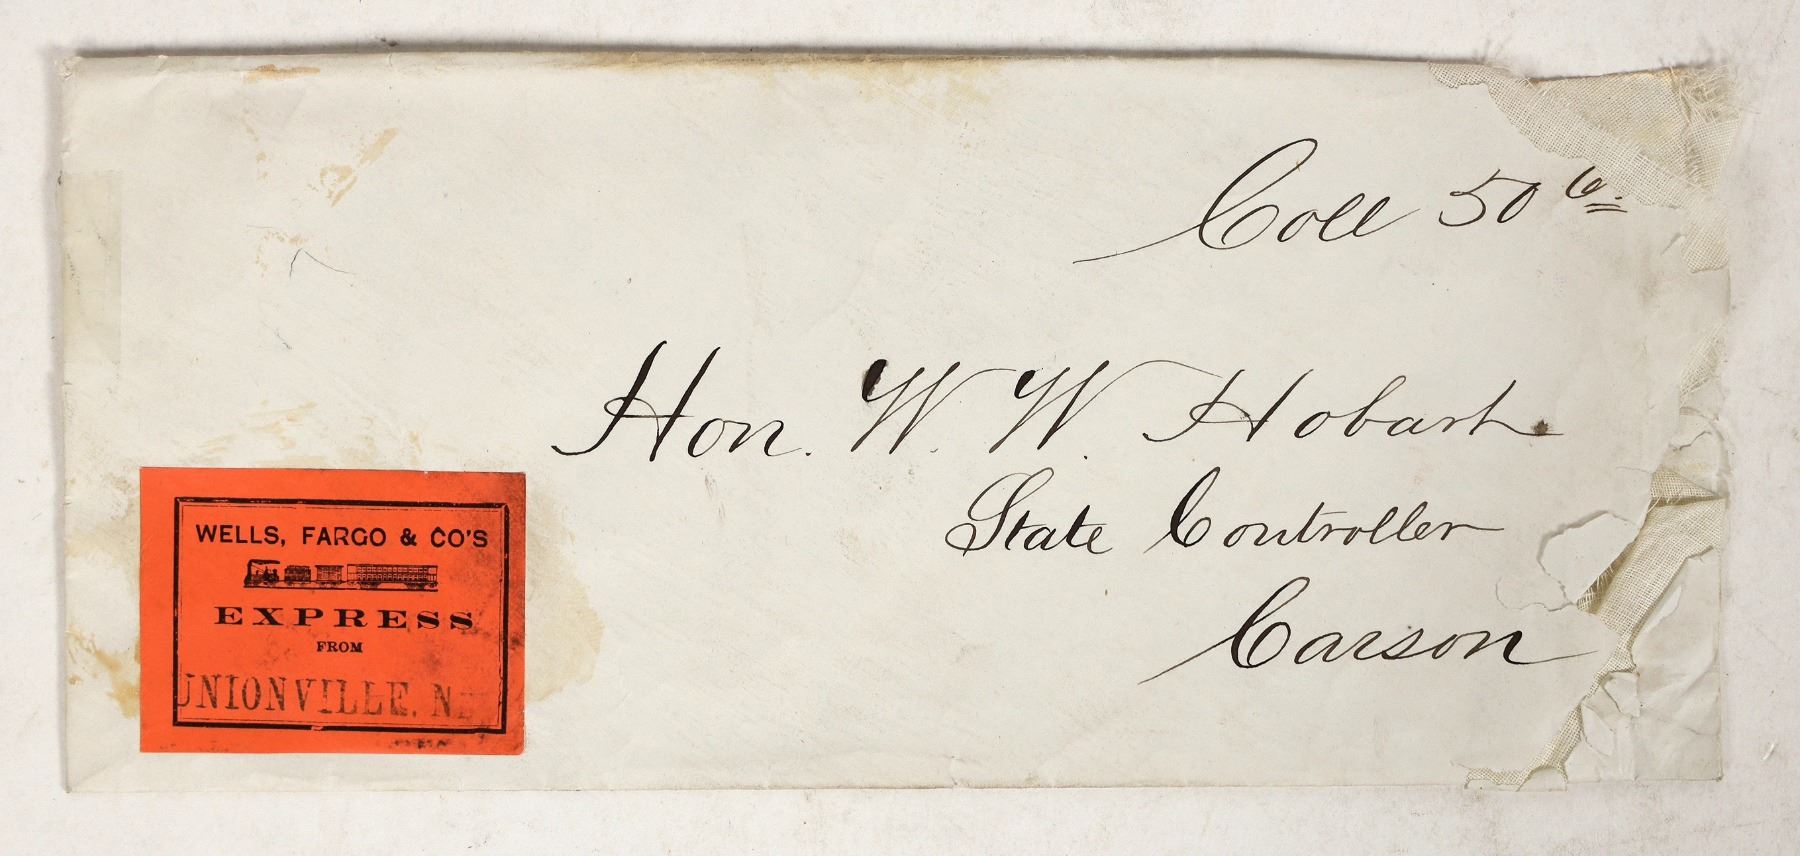 Coll 50 c.
Hon. W. W. Hobart
State Controller
Carson
WELLS, FARGO & CO'S
EXPRESS
FROM
UNIONVILLE. N